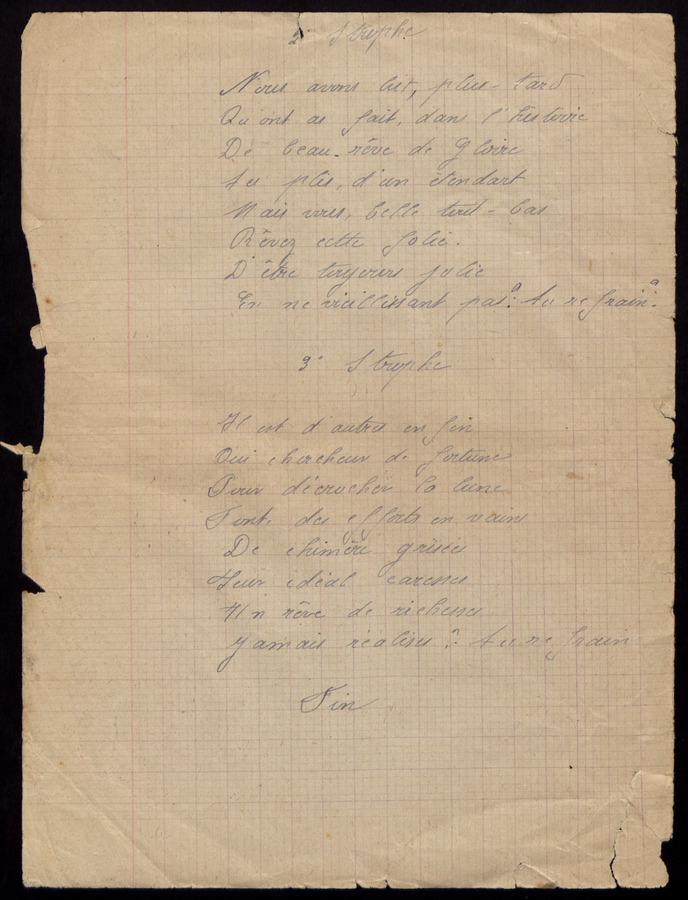 2° Strophe
Nous avons lut, plus-tard
Qu'ont as fait, dans l'histoire
De beau-rêve de Gloire
Au plis, d'un étendart
Mais vous, belle tout-bas
Rêvez cette folie.
D'être toujours jolie
En ne vieillissant pas. Au refrain.
3° Strophe
Il est d'autres en fin
Qui chercheur de fortune
Pour décrocher la lune
Font des efforts en vains
De chimère grisée
Leur idéal caresses
Un rêve de richesses
Jamais réalisés. Au refrain
Fin